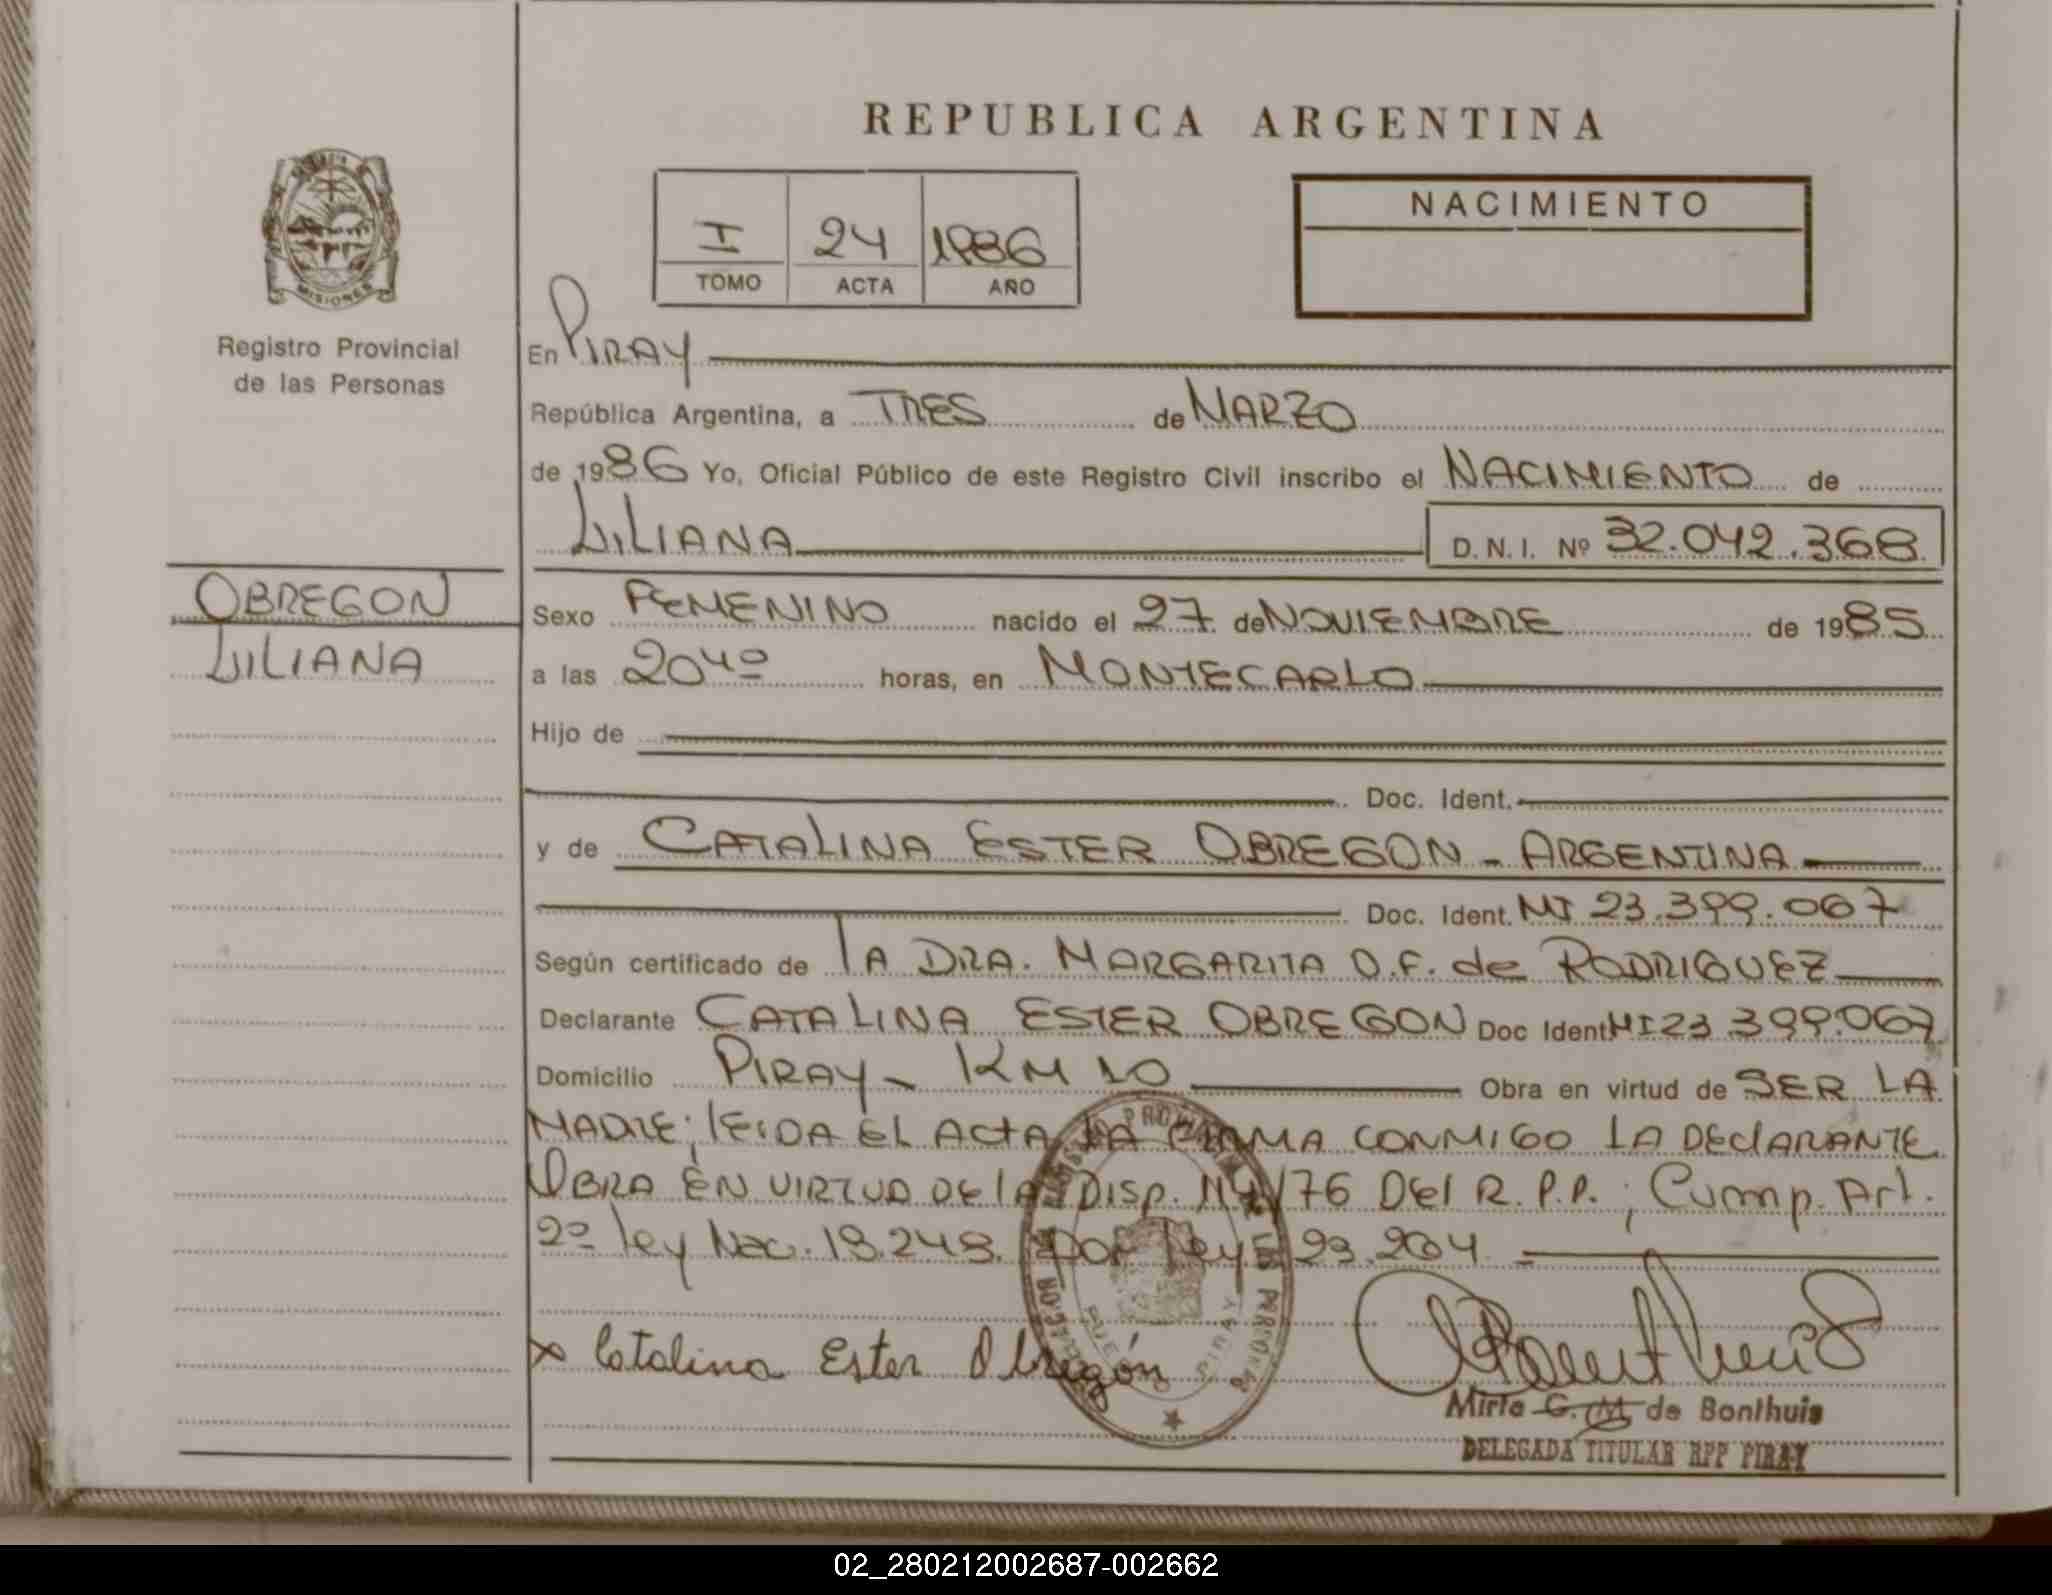 REPUBLICA ARGENTINA
MISIONES
Registro Provincial
de las Personas
I 24 1986
TOMO ACTA AÑO
NACIMIENTO
En PIRAY
República Argentina, a TRES de MARZO
de 1986 Yo, Oficial Público de este Registro Civil inscribo el NACIMIENTO de
LILIANA D.N.I. Nº 32.042.368
OBREGON
LILIANA
Sexo FEMENINO nacido el 27 de NOVIEMBRE de 1985
a las 20 40 horas, en MONTECARLO
Hijo de
Doc. Ident.
y de CATALINA ESTER OBREGON - ARGENTINA
Doc. Ident. MI 23.399.067
Según certificado de LA DRA. MARGARITA O.F. de RODRIGUEZ
Declarante CATALINA ESTER OBREGON Doc Ident MI 23 399.067
Domicilio PIRAY - KM 10 Obra en virtud de SER LA
MADRE; lEIDA EL ACTA LA FIRMA CONMIGO LA DECLARANTE
OBRA EN VIRTUD DE lA DISP. 114/76 DEl R.P.P. ; Cump. Art.
2º ley Nac. 18.248. por ley 23.264
x Catalina Ester Obregón
Mirta G. M. de Bonthuis
DELEGADA TITULAR RPP PIRAY
02_280212002687-002662